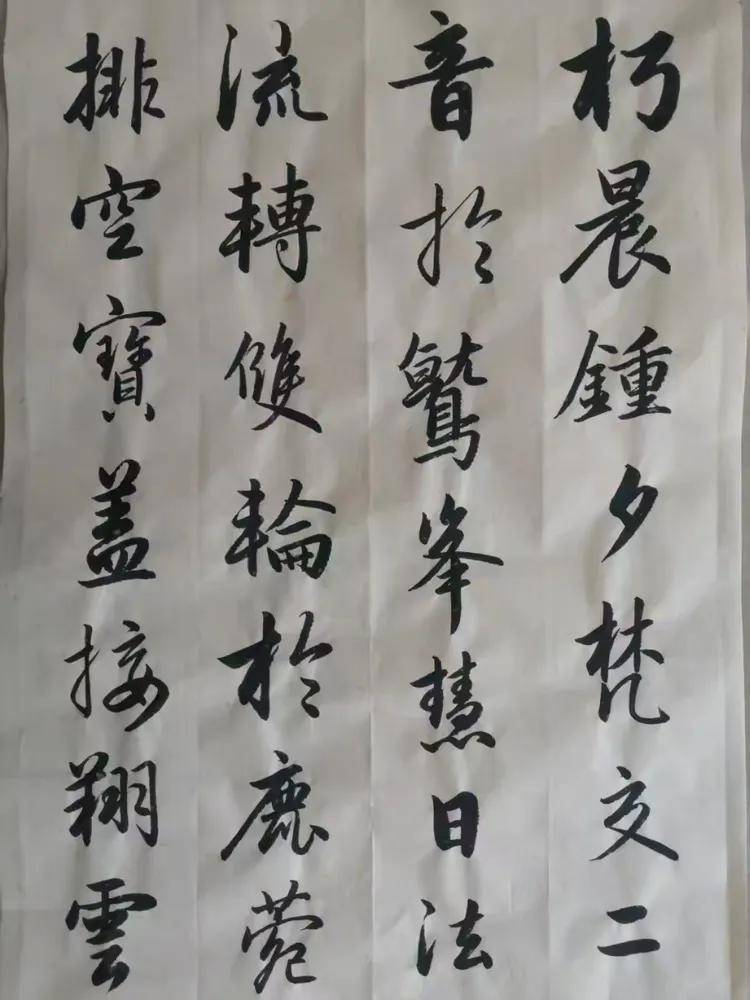 朽晨鍾夕梵交二
音於鷲峯慧日法
流轉雙輪於鹿菀
排空寶蓋接翔雲